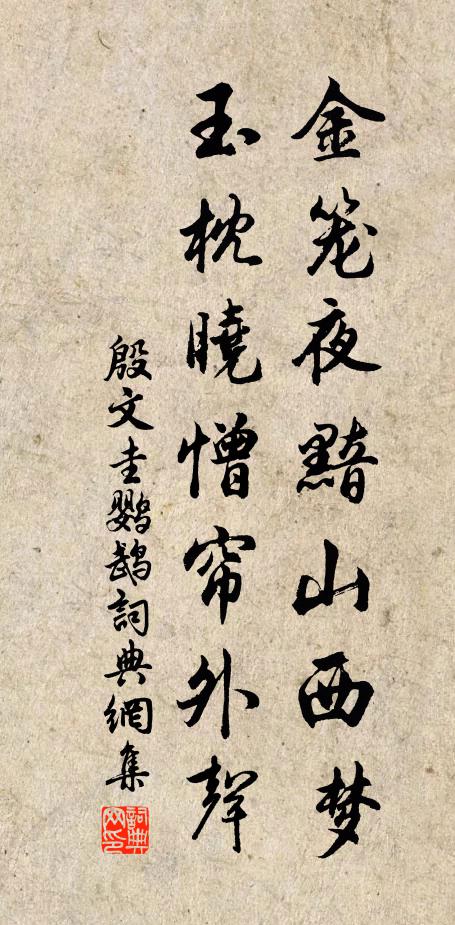 金笼夜黯山西梦
玉枕晓憎帘外声
殷文圭鹦鹉詞典網集
詞典网印